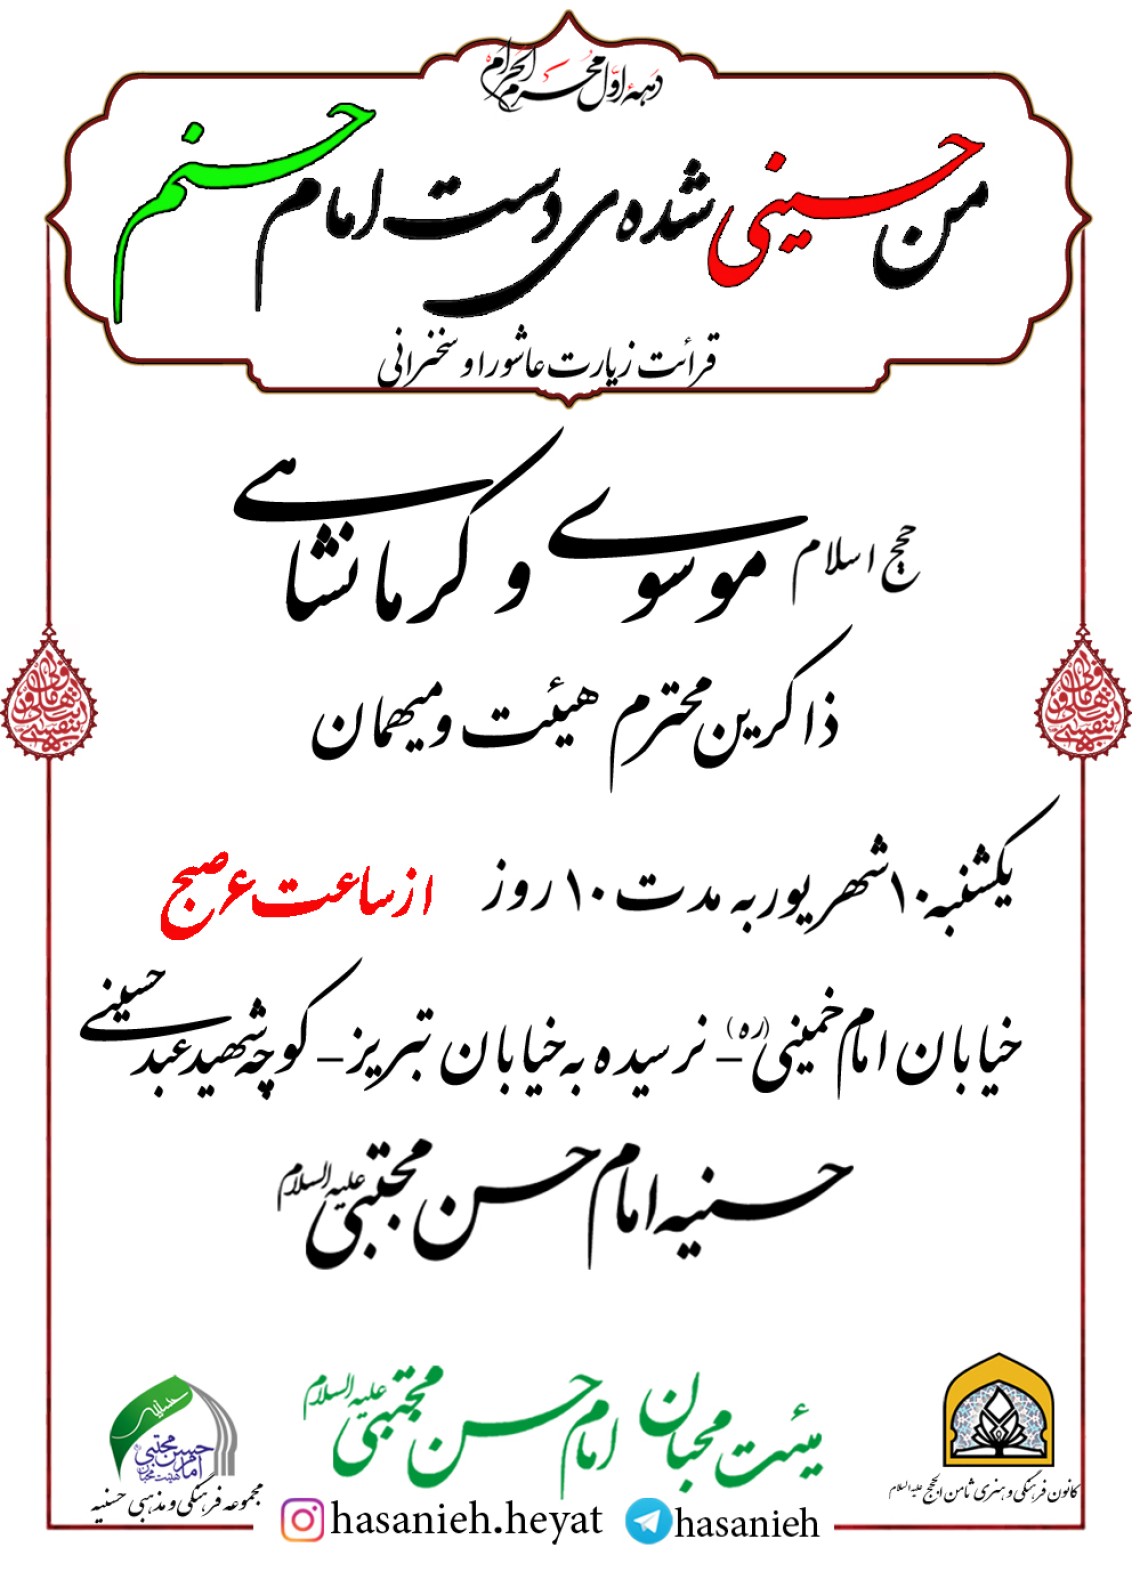 دههٔ اوّل محرم الحرام
من حسینی شده‌ی دست امام حسنم
قرائت زیارت عاشورا و سخنرانی
حجج اسلام موسوی و کرمانشاهی
ذاکرین محترم هیئت و میهمان
یکشنبه ۱۰ شهریور به مدت ۱۰ روز از ساعت ۶ صبح
خیابان امام خمینی (ره) – نرسیده به خیابان تبریز – کوچه شهید عبدحسینی
حسنیه امام حسن مجتبی علیه السلام
هیئت محبان امام حسن مجتبی علیه السلام
کانون فرهنگی و هنری ثامن الحجج علیه السلام
حسنیه
امام حسن مجتبی
هیئت محبان
مجموعه فرهنگی و مذهبی حسنیه
hasanieh.heyat hasanieh